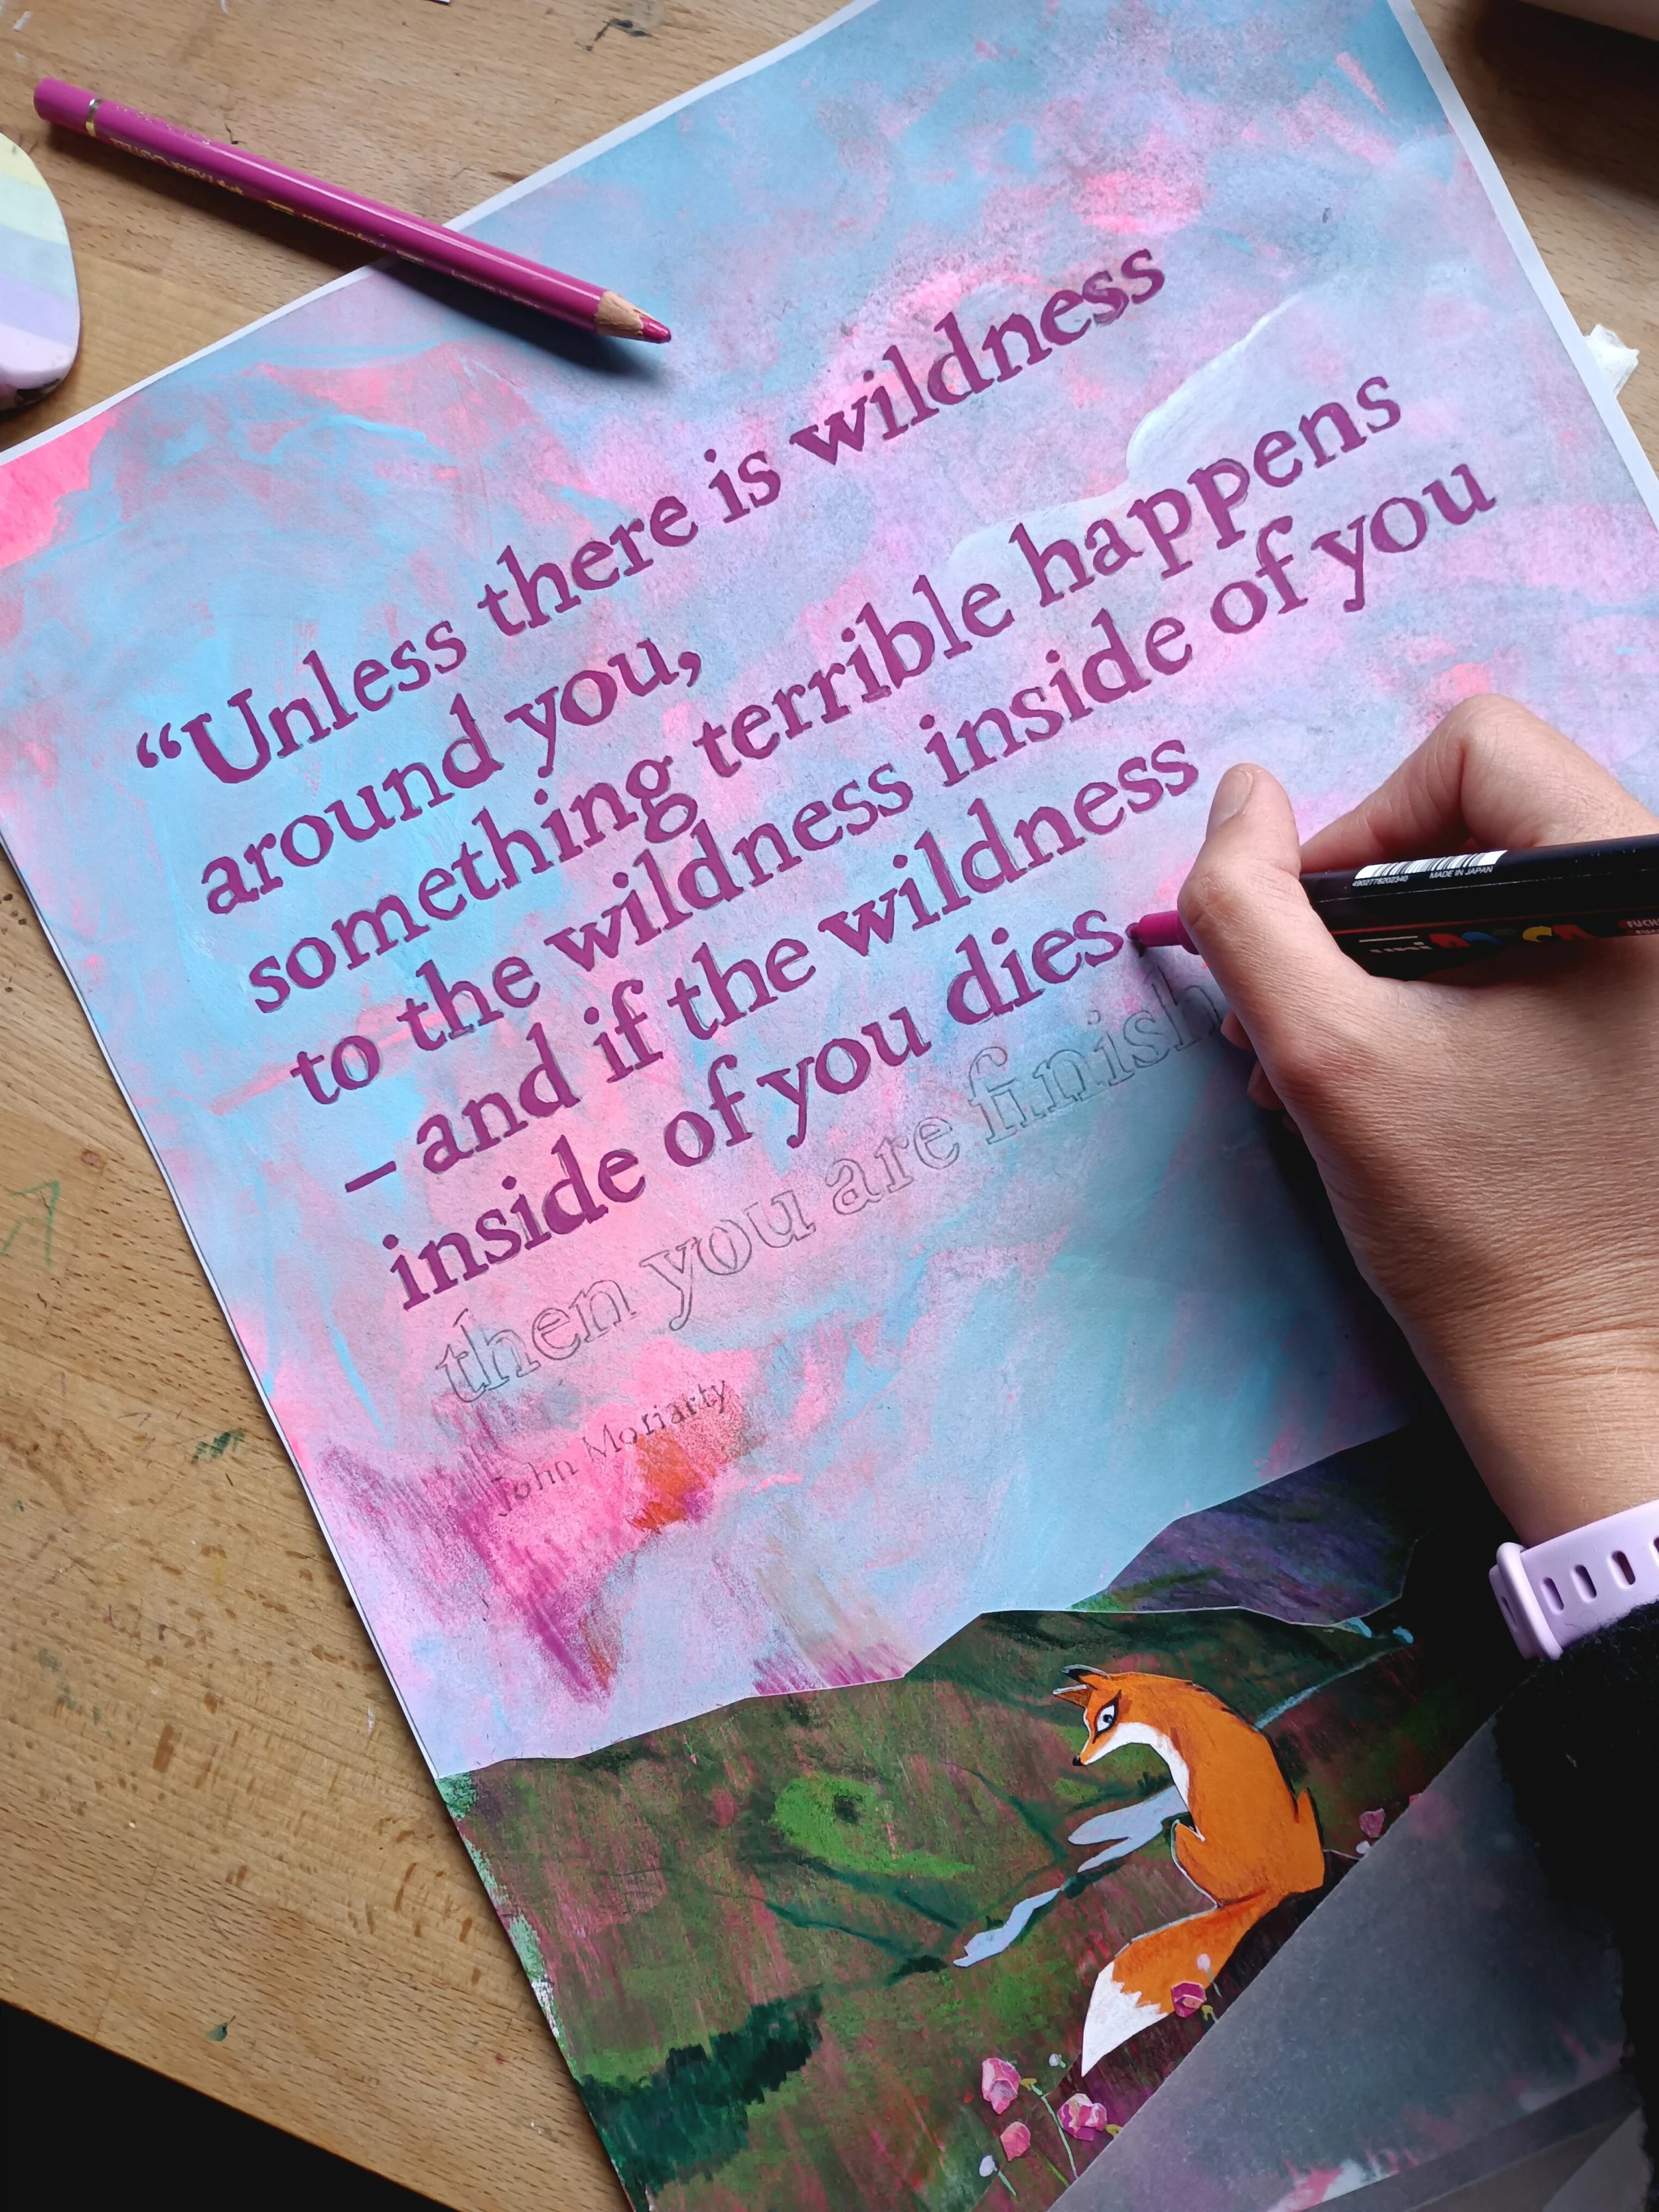 “Unless there is wildness
around you,
something terrible happens
to the wildness inside of you
– and if the wildness
inside of you dies
then you are finish
John Moriarty
4902778202340
MADE IN JAPAN
uni POSCA
FUCHS